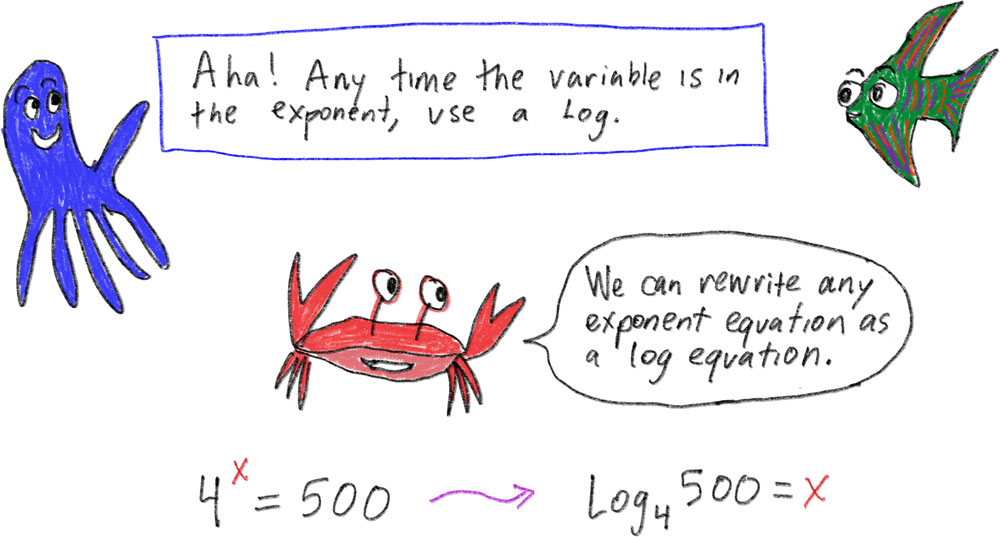 Aha! Any time the variable is in
the exponent, use a Log.
We can rewrite any
exponent equation as
a log equation.
4^x = 500 → Log₄ 500 = x